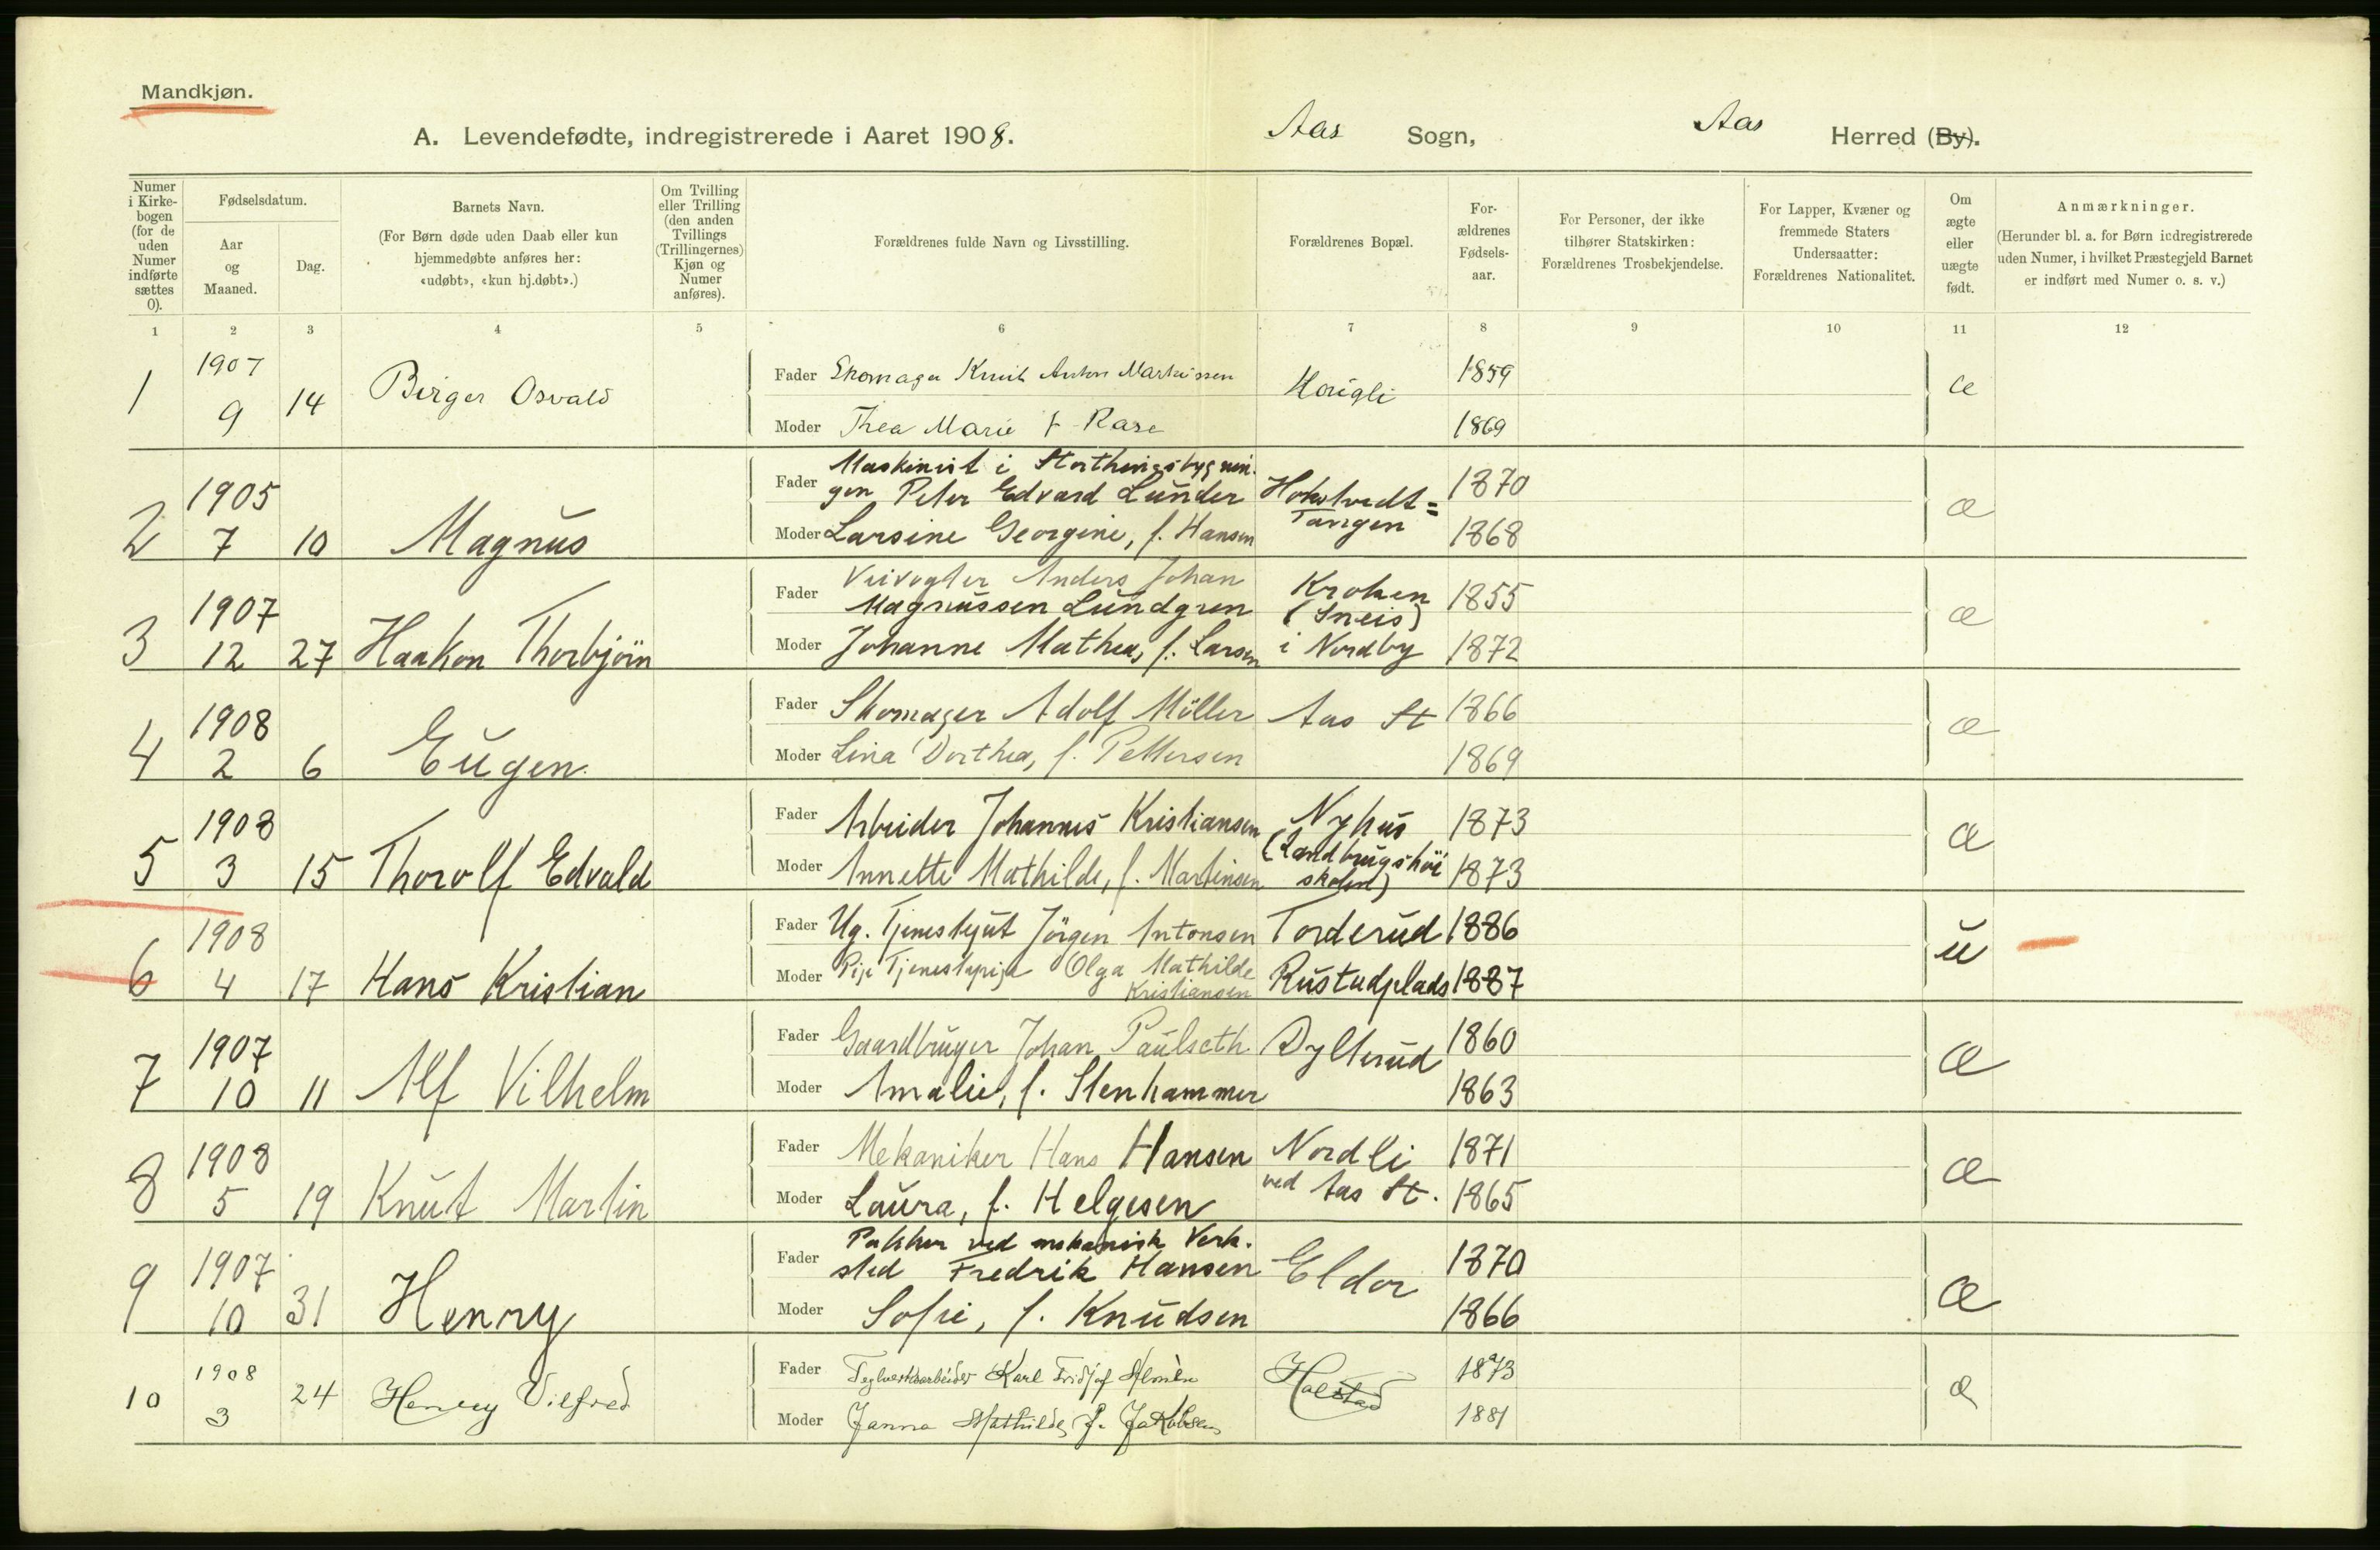 Mandkjøn.
A. Levendefødte, indregistrerede i Aaret 1908. Aas Sogn, Aas Herred (By).
Numer i Kirkebogen (for de uden Numer indførte sættes 0).
Fødselsdatum.
Aar og Maaned.
Dag.
Barnets Navn.
(For Børn døde uden Daab eller kun hjemmedøbte anføres her: «udøbt», «kun hj.døbt».)
Om Tvilling eller Trilling (den anden Tvillings (Trillingernes) Kjøn og Numer anføres).
Forældrenes fulde Navn og Livsstilling.
Forældrenes Bopæl.
Forældrenes Fødselsaar.
For Personer, der ikke tilhører Statskirken: Forældrenes Trosbekjendelse.
For Lapper, Kvæner og fremmede Staters Undersaatter: Forældrenes Nationalitet.
Om ægte eller uægte født.
Anmærkninger.
(Herunder bl. a. for Børn indregistrerede uden Numer, i hvilket Præstegjeld Barnet er indført med Numer o. s. v.)
1 2 3 4 5 6 7 8 9 10 11 12
1 1907 9 14 Birger Osvald
Fader Skomager Knut Anton 1859 æ
Moder Thea Marie f. 1869
2 1905 7 10 Magnus
Fader Maskinist i Storthingsbygnin-
gen Peter Edvard Lunder 1870 æ
Moder Larsine Georgine, f. Hansen Tangen 1868
3 1907 12 27 Haakon Thorbjörn
Fader Veivogter Anders Johan
Magnussen Lundgren Kroken (Sneis) 1855 æ
Moder Johanne Mathea, f. Larsen i Nordby 1872
4 1908 2 6 Eugen
Fader Skomager Adolf Möller Aas St 1866 æ
Moder Lina Dorthea, f. Pettersen 1869
5 1908 3 15 Thorolf Edvald
Fader Arbeider Johannes Kristiansen Nyhus 1873 æ
Moder Annette Mathilde, f. Martinsen (Landbrugshöi
skolen) 1873
6 1908 4 17 Hans Kristian
Fader Ug. Tjenestgut Jörgen Antonsen Torderud 1886 u
Moder Pige Tjenestepige Olga Mathilde
Kristiansen Rustadplads 1887
7 1907 10 11 Alf Vilhelm
Fader Gaardbruger Johan Paulseth Dylterud 1860 æ
Moder Amalie, f. Stenhammer 1863
8 1908 5 19 Knut Martin
Fader Mekaniker Hans Hansen Nordli 1871 æ
Moder Laura, f. Helgesen ved Aas St. 1865
9 1907 10 31 Henry
Fader Pakker ved mekanisk Verk-
sted Fredrik Hansen Eldor 1870 æ
Moder Sofie, f. Knudsen 1866
10 1908 3 24 Henry Vilfred
Fader Teglverksarbeider Karl Fridtjof 1873 æ
Moder Janna Mathilde, f. Jakobsen 1881